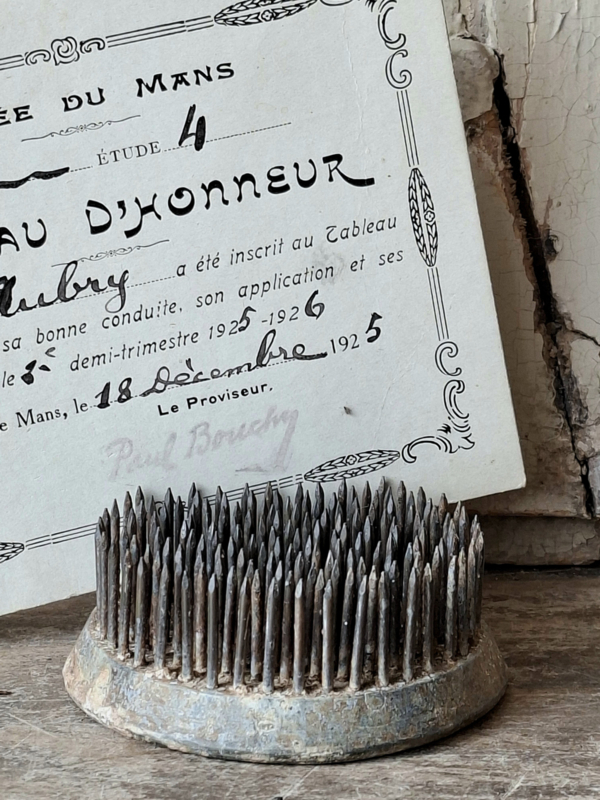 ÉE DU MANS
ÉTUDE 4
AU D'HONNEUR
Aubry a été inscrit au Tableau
sa bonne conduite, son application et ses
le 5e demi-trimestre 1925-1926
e Mans, le 18 Décembre 1925
Le Proviseur,
Paul Bouchy